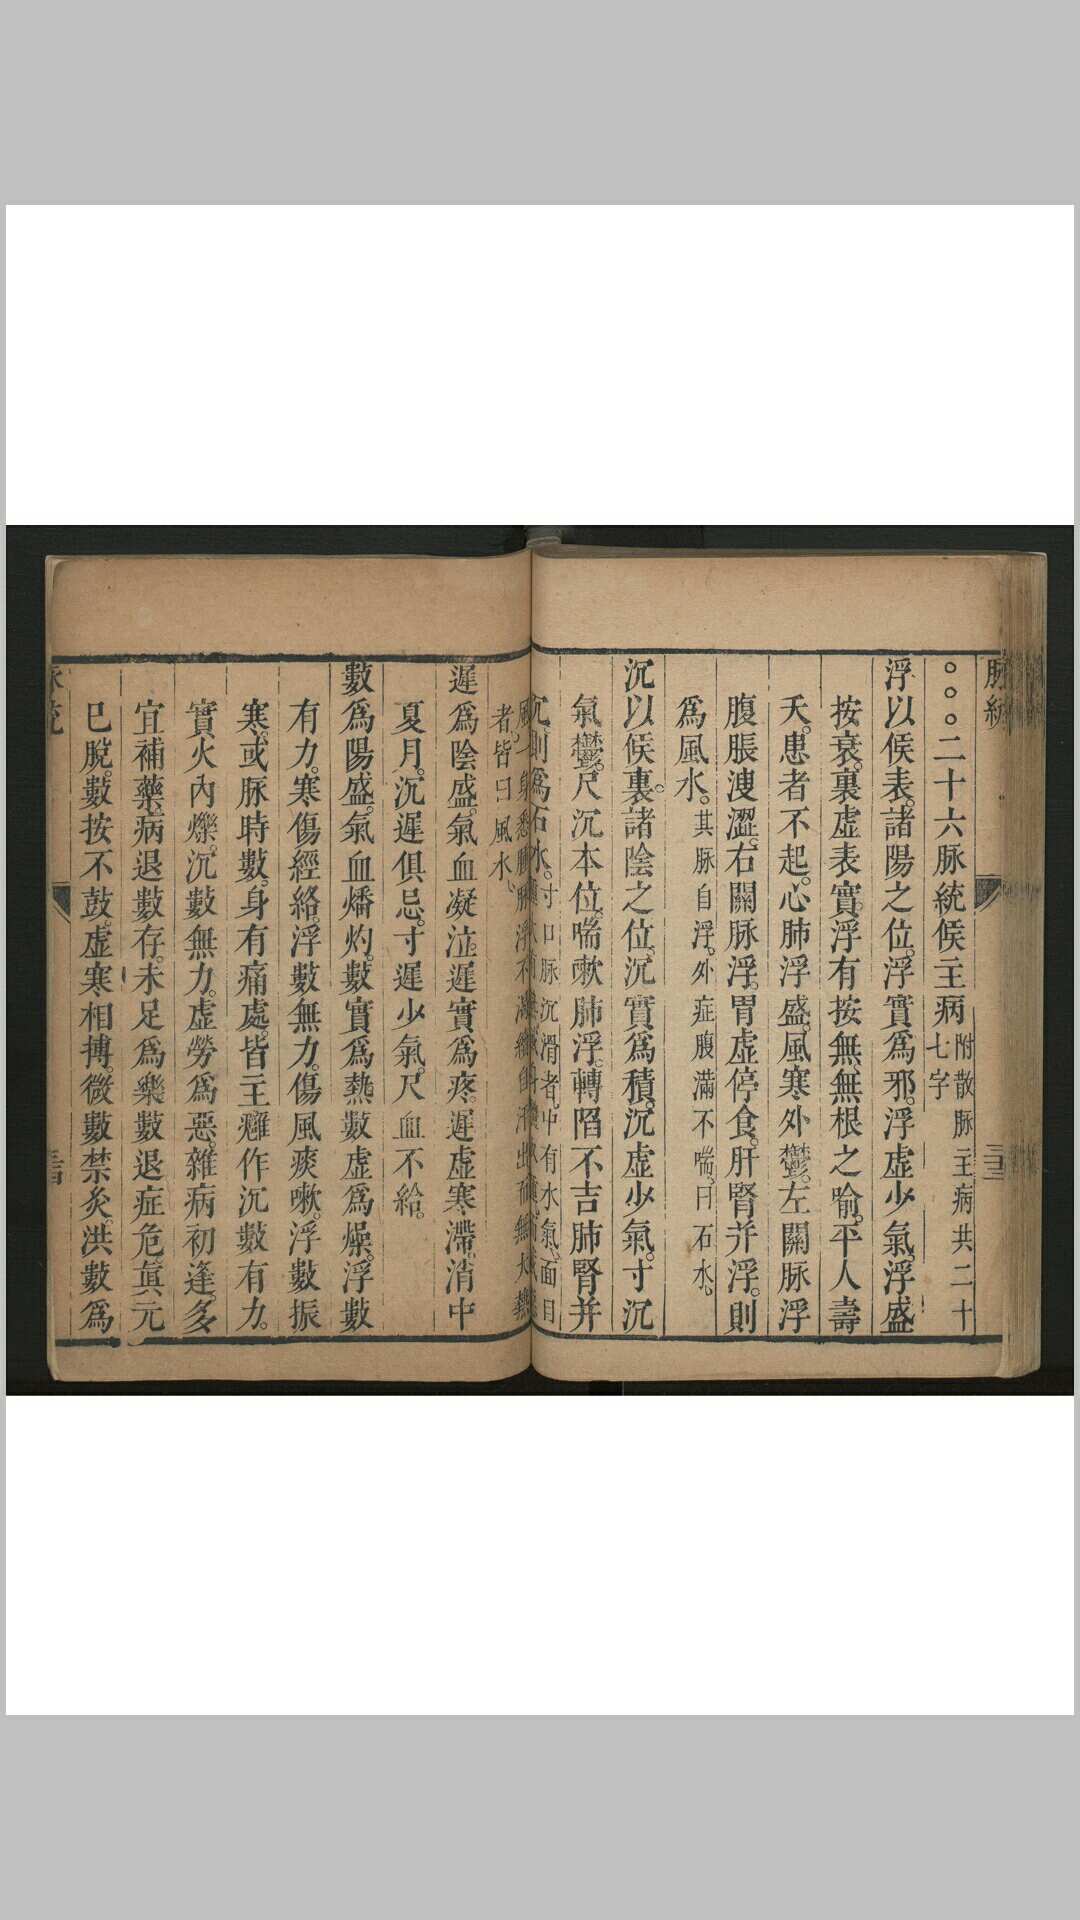 脉統
。。。二十六脉統候主病附散脉主病共二十七字
浮以候表。諸陽之位。浮實爲邪。浮虛少氣。浮盛
按衰。裏虛表實。浮有按無。無根之喻。平人壽
夭。患者不起。心肺浮盛。風寒外鬱。左關脉浮
腹脹溲澀。右關脉浮。胃虛停食。肝腎并浮。則
爲風水。其脉自浮。外症腹滿不喘。曰石水。
沉以候裏。諸陰之位。沉實爲積。沉虛少氣。寸沉
氣鬱。尺沉本位。喘嗽肺浮。轉陷不吉肺腎并
沉則爲石水。寸口脉沉滑者。中有水氣。面目
者。皆曰風水。
遲爲陰盛。氣血凝泣。遲實爲疼。遲虛寒滯。消中
夏月。沉遲俱忌。寸遲少氣。尺血不給。
數爲陽盛。氣血燔灼。數實爲熱數虛爲燥。浮數
有力。寒傷經絡。浮數無力。傷風痰嗽。浮數振
寒。或脉時數。身有痛處。皆主癰作沉數有力。
實火內爍。沉數無力。虛勞爲惡。雜病初逢。多
宜補藥。病退數存。未足爲樂數退症危。眞元
巳脫。數按不鼓。虛寒相搏。微數禁灸。洪數爲